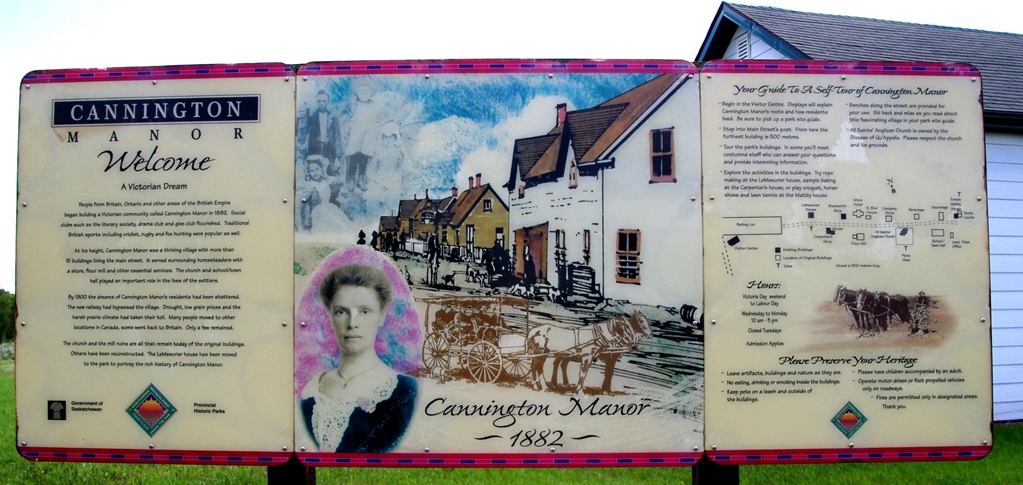 CANNINGTON
MANOR
Welcome
A Victorian Dream
People from Britain, Ontario and other areas of the British Empire
began building a Victorian community called Cannington Manor in 1882. Social
clubs such as the literary society, drama club and glee club flourished. Traditional
British sports including cricket, rugby and fox hunting were popular as well.
At its height, Cannington Manor was a thriving village with more than
15 buildings lining the main street. It served surrounding homesteaders with
a store, flour mill and other essential services. The church and school/town
hall played an important role in the lives of the settlers.
By 1900 the dreams of Cannington Manor's residents had been shattered.
The new railway had bypassed the village. Drought, low grain prices and the
harsh prairie climate had taken their toll. Many people moved to other
locations in Canada, some went back to Britain. Only a few remained.
The church and the mill ruins are all that remain today of the original buildings.
Others have been reconstructed. The LeMesurier house has been moved
to the park to portray the rich history of Cannington Manor.
Government of
Saskatchewan
Provincial
Historic Parks
Cannington Manor
~ 1882 ~
Your Guide To A Self-Tour of Cannington Manor
- Begin in the Visitor Centre. Displays will explain
Cannington Manor's roots and how residents
lived. Be sure to pick up a park site guide.
- Step into Main Street's past. From here the
furthest building is 500 metres.
- Tour the park's buildings. In some you'll meet
costumed staff who can answer your questions
and provide interesting information.
- Explore the activities in the buildings. Try rope
making at the LeMesurier house, sample baking
at the Carpenter's house, or play croquet, horse-
shoes and lawn tennis at the Maltby house.
- Benches along the street are provided for
your use. Sit back and relax as you read about
this fascinating village in your park site guide.
- All Saints' Anglican Church is owned by the
Diocese of Qu'Appelle. Please respect the church
and its grounds.
Parking Lot
Visitor Centre
LeMesurier
House
Blacksmith
Shop
Carpenter
Shop
Flour Mill
All Saints'
Anglican Church
Existing Buildings
Location of Original Buildings
Toilet
Street is 500 metres long
Hours:
Victoria Day weekend
to Labour Day
Wednesday to Monday
10 am - 5 pm
Closed Tuesdays
Admission Applies
Please Preserve Your Heritage
- Leave artifacts, buildings and nature as they are.
- No eating, drinking or smoking inside the buildings.
- Keep pets on a leash and outside of
the buildings.
- Please have children accompanied by an adult.
- Operate motor driven or foot propelled vehicles
only on roadways.
- Fires are permitted only in designated areas.
Thank you.